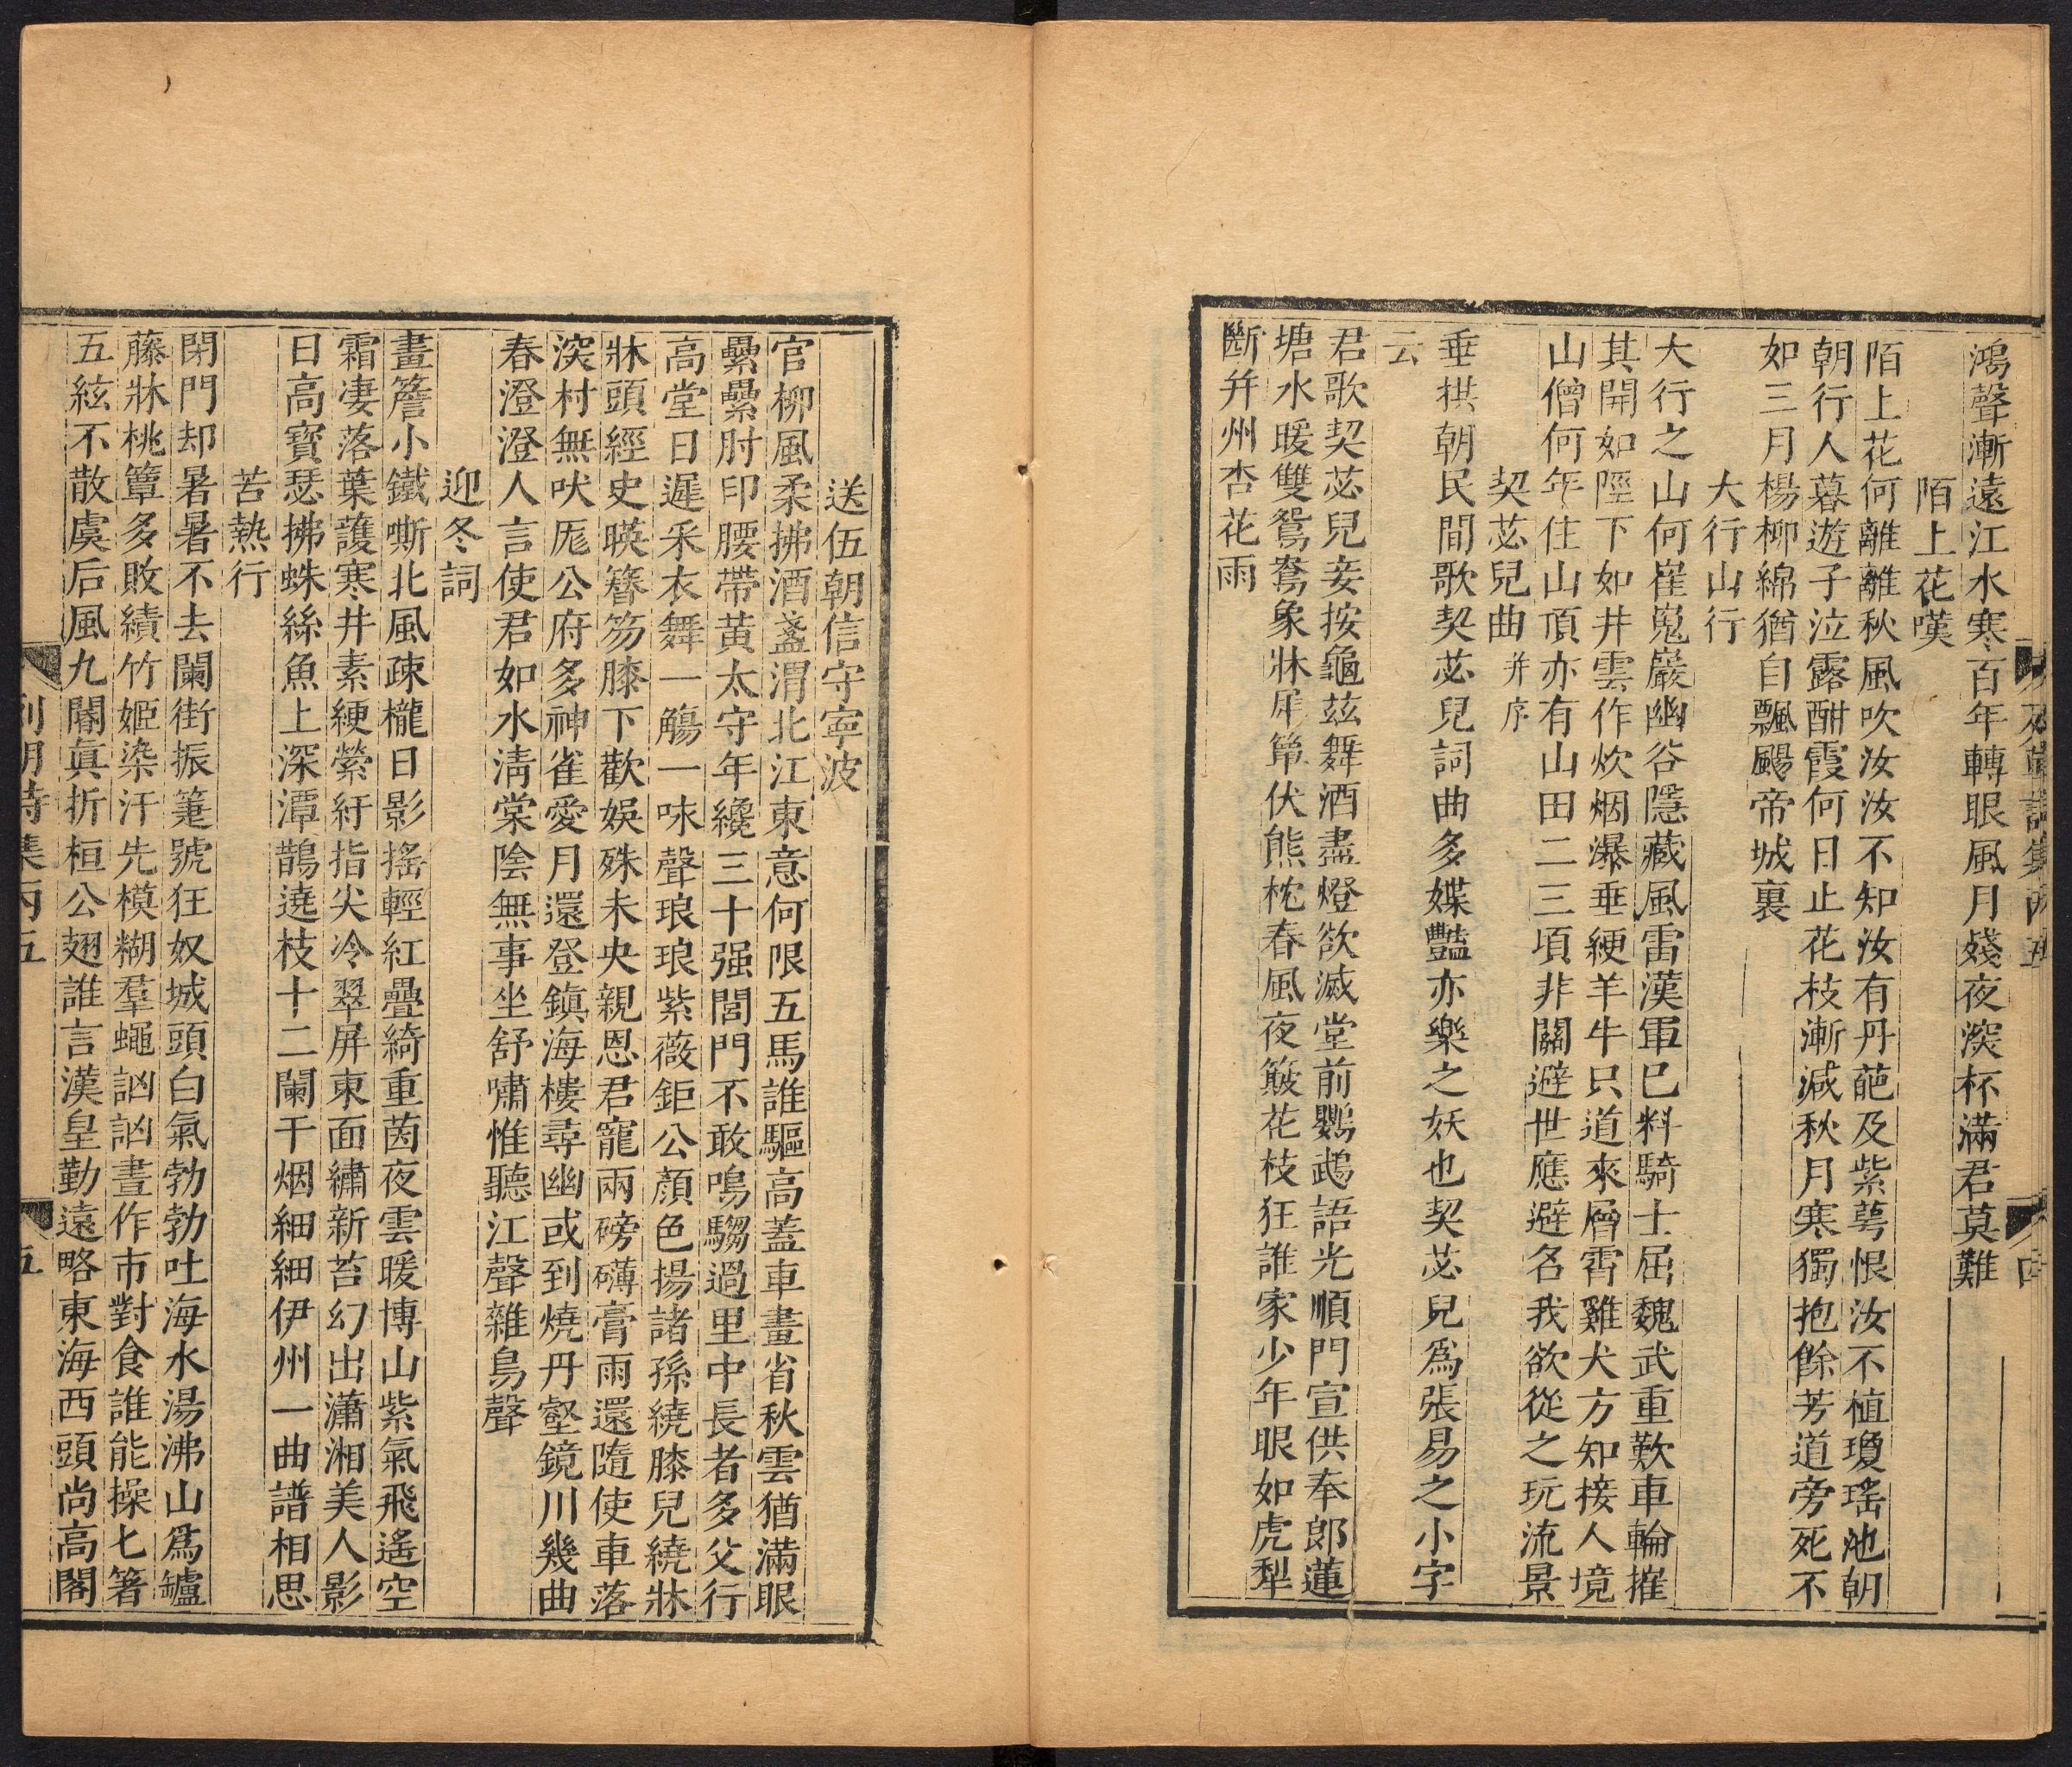 鴻聲漸遠江水寒百年轉眼風月殘夜深杯滿君莫難
陌上花嘆
陌上花何離離秋風吹汝汝不知汝有丹葩及紫萼恨汝不植瓊瑤池朝
朝行人暮遊子泣露酣霞何日止花枝漸減秋月寒獨抱餘芳道旁死不
如三月楊柳綿猶自飄颺帝城裏
大行山行
大行之山何崔嵬巖幽谷隱藏風雷漢軍已料騎士屈魏武重歎車輪摧
其開如陘下如井雲作炊烟瀑垂綆羊牛只道來層霄雞犬方知接人境
山僧何年住山頂亦有山田二三頃非關避世應避名我欲從之玩流景
契苾兒曲并序
垂拱朝民間歌契苾兒詞曲多媟豔亦樂之妖也契苾兒爲張易之小字
云
君歌契苾兒妾按龜茲舞酒盡燈欲滅堂前鸚鵡語光順門宣供奉郎蓮
塘水暖雙鴛鴦象牀犀簟伏熊枕春風夜簸花枝狂誰家少年眼如虎犁
斷并州杏花雨
送伍朝信守寧波
官柳風柔拂酒盞渭北江東意何限五馬誰驅高蓋車畫省秋雲猶滿眼
纍纍肘印腰帶黃太守年纔三十强閭門不敢鳴騶過里中長者多父行
高堂日遲采衣舞一觴一味聲琅琅紫薇鉅公顏色揚諸孫繞膝兒繞牀
牀頭經史暎簪笏膝下歡娛殊未央親恩君寵兩磅礴膏雨還隨使車落
深村無吠厖公府多神雀愛月還登鎮海樓尋幽或到燒丹壑鏡川幾曲
春澄澄人言使君如水淸棠陰無事坐舒嘯惟聽江聲雜鳥聲
迎冬詞
畫簷小鐵嘶北風疎櫳日影搖輕紅疊綺重茵夜雲暖博山紫氣飛遙空
霜凄落葉護寒井素綆縈紆指尖冷翠屏東面繡新苔幻出瀟湘美人影
日高寶瑟拂蛛絲魚上深潭鵲遶枝十二闌干烟細細伊州一曲譜相思
苦熱行
閉門却暑暑不去闌街振篷號狂奴城頭白氣勃勃吐海水湯沸山爲鑪
藤牀桃簟多敗績竹姬染汗先模糊羣蠅訩訩晝作市對食誰能操匕箸
五絃不散虞后風九閽眞折桓公翅誰言漢皇勤遠略東海西頭尚高閣
列朝詩集丙五
五